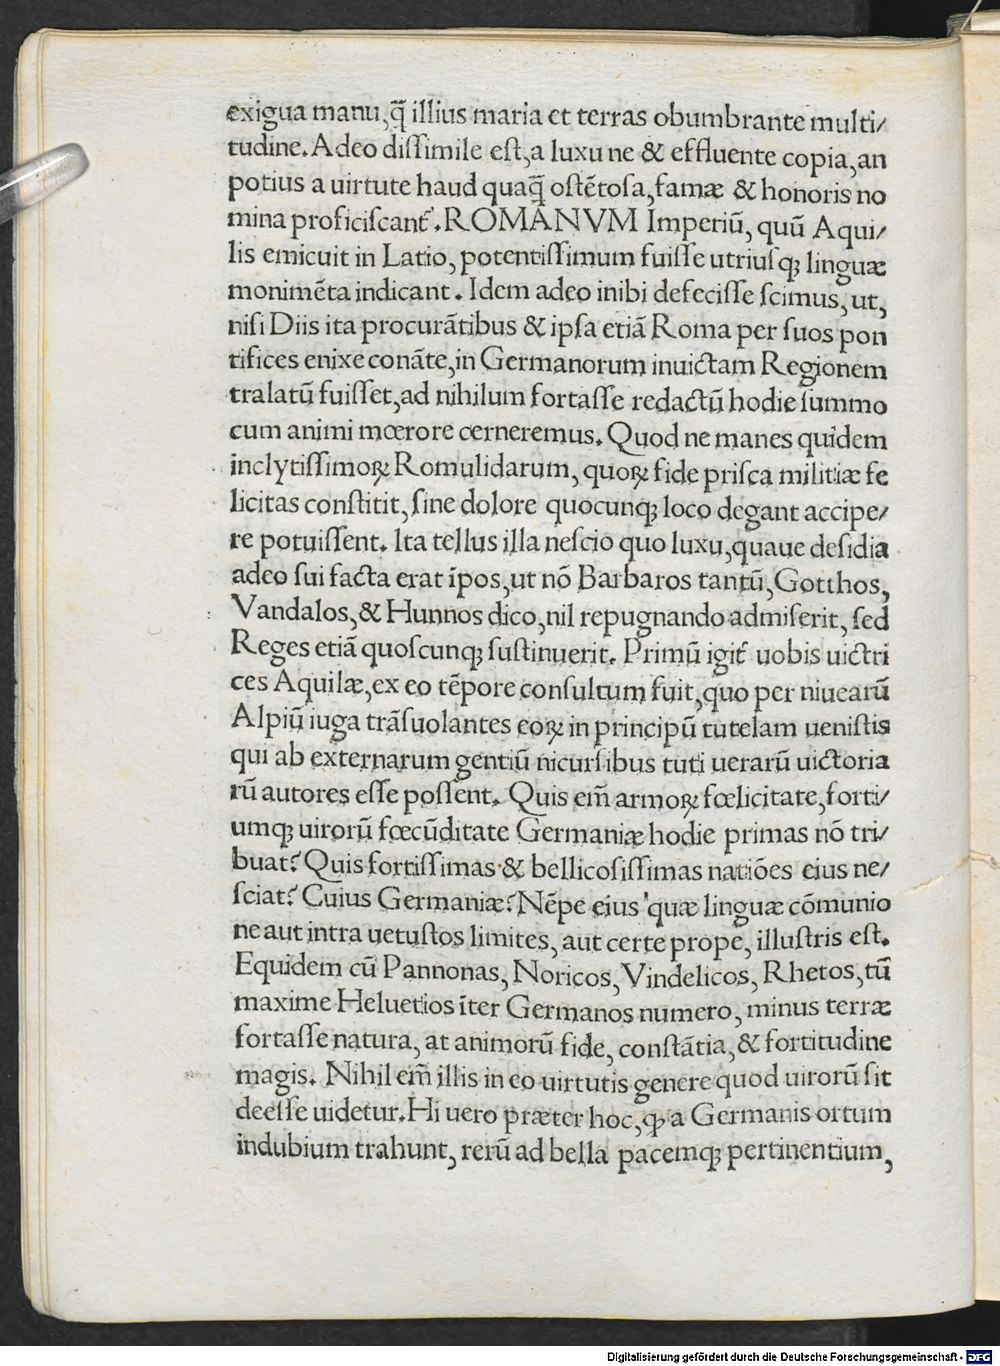 exigua manu,q̄ illius maria et terras obumbrante multi/
tudine.Adeo diſſimile eſt,a luxu ne & effluente copia,an
potius a uirtute haud quaq̄ oſtẽtoſa,famæ & honoris no
mina proficiſcant᷑.ROMANVM Imperiũ, quũ Aqui/
lis emicuit in Latio, potentiſſimum fuiſſe utriuſqꝫ linguæ
monimẽta indicant. Idem adeo inibi defeciſſe ſcimus, ut,
niſi Diis ita procurãtibus & ipſa etiã Roma per ſuos pon
tifices enixe conãte,in Germanorum inuictam Regionem
tralatũ fuiſſet,ad nihilum fortaſſe redactũ hodie ſummo
cum animi mœrore cerneremus. Quod ne manes quidem
inclytiſſimoꝝ Romulidarum, quoꝝ fide priſca militiæ fe
licitas conſtitit, ſine dolore quocunqꝫ loco degant accipe/
re potuiſſent. Ita tellus illa neſcio quo luxu,quaue deſidia
adeo ſui facta erat ĩpos,ut nõ Barbaros tantũ,Gotthos,
Vandalos,& Hunnos dico,nil repugnando admiſerit, ſed
Reges etiã quoſcunqꝫ ſuſtinuerit. Primũ igit᷑ uobis uictri
ces Aquilæ,ex eo tẽpore conſultum fuit,quo per niuearũ
Alpiũ iuga trãſuolantes eoꝝ in principũ tutelam ueniſtis
qui ab externarum gentiũ nicurſibus tuti uerarũ uictoria
rũ autores eſſe poſſent. Quis em̃ armoꝝ fœlicitate,forti/
umqꝫ uirorũ fœcũditate Germaniæ hodie primas nõ tri/
buat? Quis fortiſſimas & bellicoſiſſimas natiões eius ne/
ſciat? Cuius Germaniæ? Nẽpe eius quæ linguæ cõmunio
ne aut intra uetuſtos limites, aut certe prope, illuſtris eſt.
Equidem cũ Pannonas, Noricos, Vindelicos, Rhetos, tũ
maxime Heluetios ĩter Germanos numero, minus terræ
fortaſſe natura, at animorũ fide, conſtãtia, & fortitudine
magis. Nihil em̃ illis in eo uirtutis genere quod uirorũ ſit
deeſſe uidetur.Hi uero præter hoc,ꝙ a Germanis ortum
indubium trahunt, rerũ ad bella pacemqꝫ pertinentium,
Digitalisierung gefördert durch die Deutsche Forschungsgemeinschaft - DFG